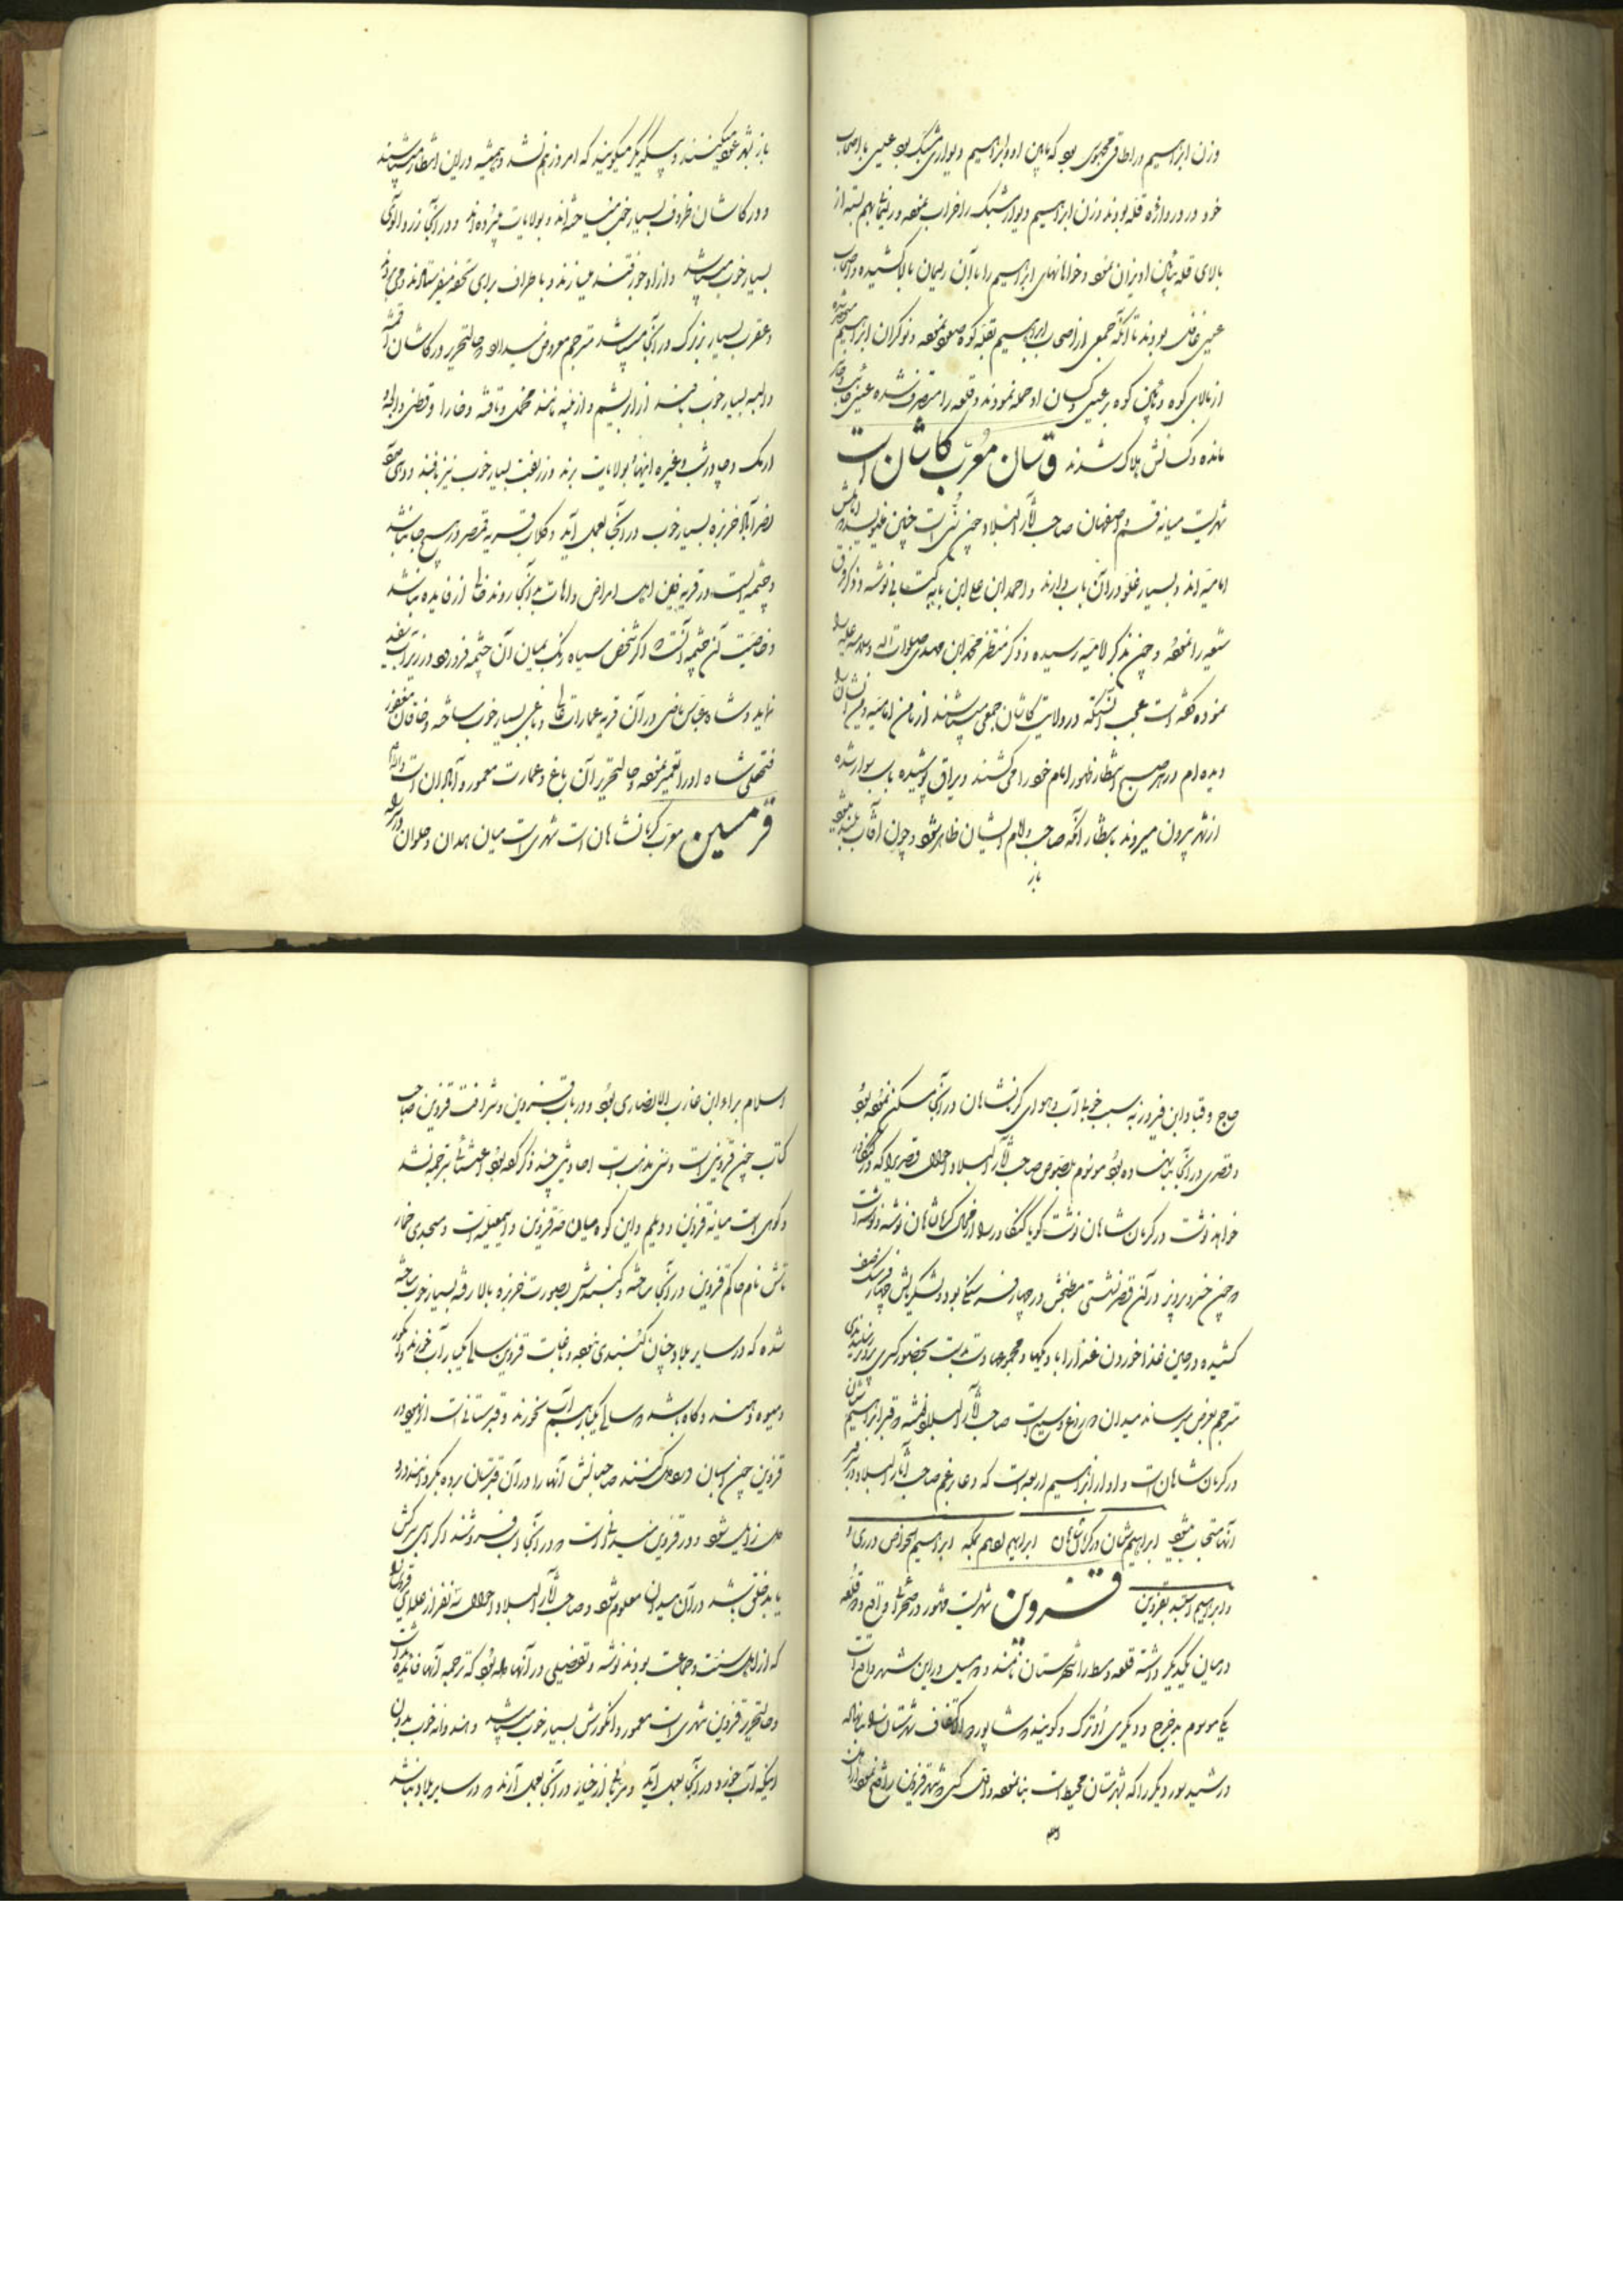 وزن ابراهیم در اطاقی محبوس بود که مابین او و ابراهیم دیواری مشبک بود عیسی با اصحاب
خود در دروازه قلعه بودند وزن ابراهیم دیوار مشبک را خراب نموده و ریسمانها بهم بسته از
بالای قلعه بپائین آویزان نموده و خواهانهای ابراهیم را با آن ریسمان بالا کشیده و اصحاب
عیسی غافل بودند تا آنکه جمعی از اصحاب ابراهیم بقله کوه صعود نموده و نوکران ابراهیم
از بالای کوه و پائین کوه بر عیسی و کسان او حمله نمودند و قلعه را متصرف شده عیسی
مانده و کسانش هلاک شدند قاسان معرب کاشان است
شهریست میانه قم و اصفهان صاحب آثار البلاد چون سنی است چنین مینویسد
امامیه اند و بسیار غلو در آن باب دارند و احمد ابن علی ابن بابه کتابی نوشته و ذکر فرق
شیعه را نموده و چون بذکر امامیه رسیده و ذکر منتظر محمد ابن مهدی صلوات الله و سلامه علیه
نموده گفته است عجب آنستکه در ولایت کاشان جمعی میباشند از مامن امامیه و من
دیده ام در هر صبح انتظار ظهور امام خود را می کشند و یراق پوشیده باسب سوار شده
از شهر بیرون میروند بانتظار آنکه صاحب و امام ایشان ظاهر شود و چون آفتاب بلند میشود
باز
باز بشهر عود میکنند و بیکدیگر میگویند که امروز هم نشد و همیشه در این انتظار میباشند
و در کاشان ظروف بسیار خوب میساخته اند و بولایات میبرده اند و در آنجا زردآلوی
بسیار خوب میباشد و از او جوزقند میسازند و باطراف برای تحفه میفرستادند
و عقرب بسیار بزرگ در آنجا میباشد مترجم معروض میدارد و حالتحریر در کاشان اقمشه
و البسه بسیار خوب بافند از ابریشم و از پنبه مانند مخمل و تافته و خارا و قطنی
ارمک و چادرشب و غیره اینها بولایات برند و زربفت بسیار خوب نیز بافند
نصرآباد خربزه بسیار خوب در آنجا بعمل آید و گلاب قریه قمصر در هیچ جا نباشد
و چشمه ایست در قریه فین اهل امراض و اهات بآنجا روند خالی از فایده نباشد
و خاصیت آن چشمه آنست که اگر شخص سیاه رنگ بمیان آن چشمه فرو رود و در زیر آب سفید
نماید و شاه عباس ماضی در آن قریه عمارات عالی و باغی بسیار خوب ساخته و خاقان مغفور
فتحعلی شاه او را تعمیر نموده و حالتحریر آن باغ و عمارت معمور و آبادان است
قرمسین معرب کرمانشاهان است شهری است میان همدان و حلوان
حاج و قباد ابن فیروز به سبب خوبی آب و هوای کرمانشاهان در آنجا مسکن نموده بود
و قصری در آنجا بنا نهاده بود موسوم بلصوص صاحب آثار البلاد احوال قصری را که در کنگاور
خواهد نوشت در کرمانشاهان نوشت گویا کنگاور را از محال کرمانشاهان نوشته
و چون خسرو پرویز در آن قصر نشستی مطبخش در چهار فرسنگی بود و لشکریانش
کشیده در حین غذا خوردن غذا را با دیگها و مجموعها دست بدست بحضور کسری
مترجم بعرض میرساند میدان دروغ وسیع است صاحب آثار البلاد نوشته و قبر ابراهیم
در کرمانشاهان است و او از ابراهیم اربعه است که دعا بزعم صاحب آثار البلاد در سر
آنها مستجاب میشود ابراهیم شیبان در کرمانشاهان ابراهیم ادهم بمکه ابراهیم الخواص در ری
و ابراهیم استنبه بقزوین قزوین شهریست مشهور در صحرائی واقع دو قلعه
در میان یکدیگر داشته قلعه وسط را شهرستان نامند و دو مسیل در این شهر واقع است
یکی موسوم بدرج و دیگری اترک و گویند شاپور ذو الاکتاف شهرستان را بنا نهاده
و رشید سور دیگر را که بشهرستان محیط است بنا نموده و اول کسی که شهر قزوین را فتح نموده در
اسلام براء ابن عازب الانصاری بود و در باب قزوین و شرافت قزوین صاحب
کتاب چون قزوینی است و سنی مذهب است احادیثی چند ذکر کرده بود اعتنائا ترجمه نشد
و کوهی است میانه قزوین و دیلم و این کوه میان حد قزوین و اسمعیلیه است و مسجدی خمار
تاش نام حاکم قزوین در آنجا ساخته و گنبدش بصورت خربزه بالا رفته بسیار خوب ساخته
شده که در سایر بلاد چنان گنبدی نبوده و باغات قزوین سالی یکبار آب خورند
و میوه دهند و گاه باشد در سالی یکبار هم آب نخورند و قبرستانی است در
قزوین چون اسبان درد دل کنند صاحبانش آنها را در آن قبرستان برده بگردانند درد
دل زایل شود و در قزوین میدانی است در آنجا اسب فروشند اگر اسبی سرکش
یا بد خلق باشد در آن میدان معلوم شود و صاحب آثار البلاد احوال سه نفر از علمای
که از اهل سنت و جماعت بودند نوشته و تفضیلی در آنها داده بود که ترجمه آنها فایده نداشت
و حالتحریر قزوین شهری است معمور و انگورش بسیار خوب میباشد و هندوانه خوب بدون
اینکه آب خورد در آنجا بعمل آید و مربائی از خیار در آنجا بعمل آرند در سایر بلاد نباشد